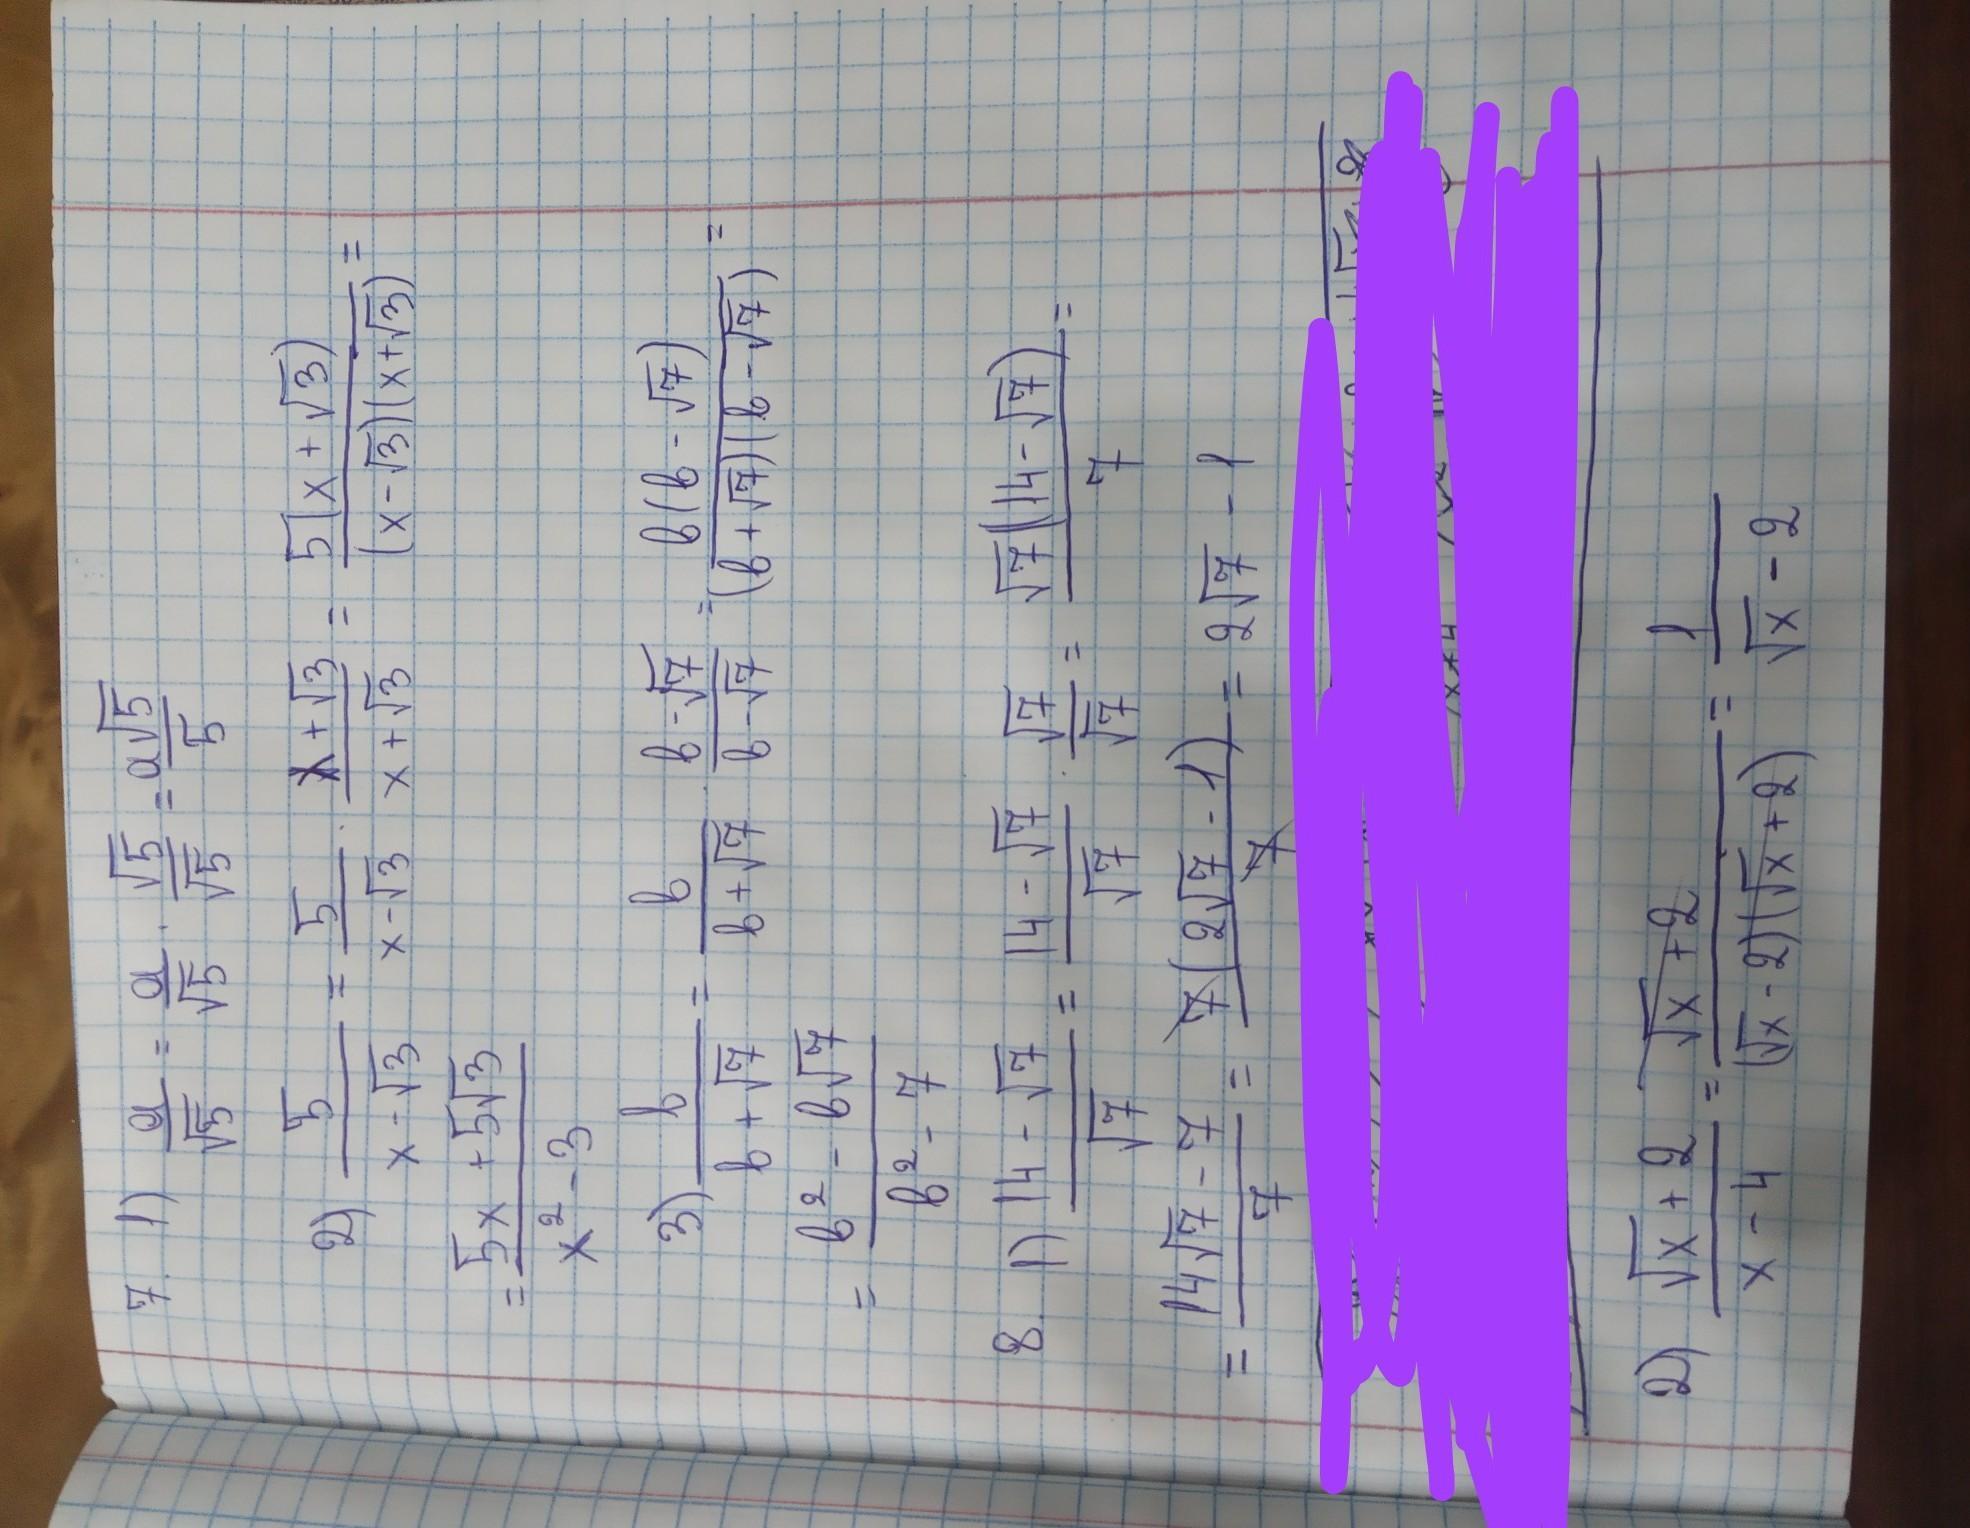 7. 1) a/√5 = a/√5 · √5/√5 = a√5/5
2) 5/(x-√3) = 5/(x-√3) · (x+√3)/(x+√3) = 5(x+√3)/((x-√3)(x+√3)) =
= (5x+5√3)/(x²-3)
3) b/(b+√7) = b/(b+√7) · (b-√7)/(b-√7) = b(b-√7)/((b+√7)(b-√7)) =
= (b²-b√7)/(b²-7)
8. 1) (14-√7)/√7 = (14-√7)/√7 · √7/√7 = √7(14-√7)/7 =
= (14√7-7)/7 = 7(2√7-1)/7 = 2√7-1
2) (√x+2)/(x-4) = (√x+2)/((√x-2)(√x+2)) = 1/(√x-2)